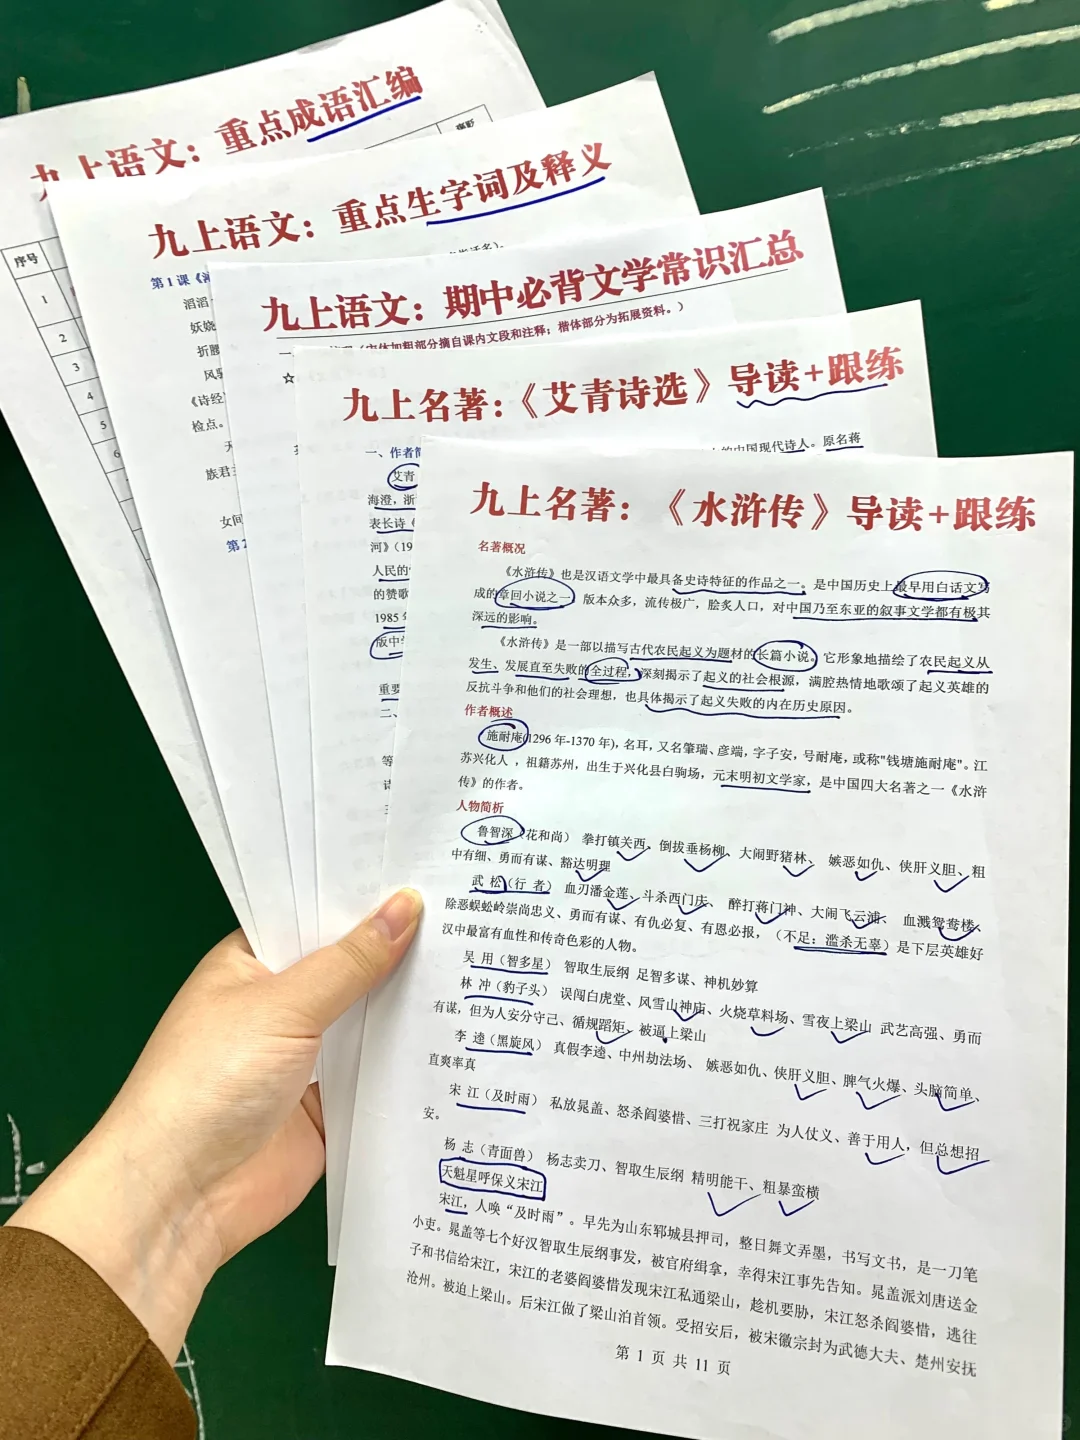 九上语文：重点成语汇编
序号
1
2
3
4
5
6
九上语文：重点生字词及释义
第1课《
滔滔
妖娆
折腰
风骚
《诗经
检点。
族君
女间
九上语文：期中必背文学常识汇总
体加粗部分摘自课内文段和注释；楷体部分为拓展资料。）
☆
九上名著：《艾青诗选》导读+跟练
中国现代诗人。原名蒋
一、作者简
艾青
海澄，浙
表长诗《
河》（19
人民的
的赞歌
1985年
版中
重要
二、
等
九上名著：《水浒传》导读+跟练
名著概况
《水浒传》也是汉语文学中最具备史诗特征的作品之一。是中国历史上最早用白话文写
成的章回小说之一 版本众多，流传极广，脍炙人口，对中国乃至东亚的叙事文学都有极其
深远的影响。
《水浒传》是一部以描写古代农民起义为题材的长篇小说。它形象地描绘了农民起义从
发生、发展直至失败的全过程，深刻揭示了起义的社会根源，满腔热情地歌颂了起义英雄的
反抗斗争和他们的社会理想，也具体揭示了起义失败的内在历史原因。
作者概述
施耐庵(1296年-1370年)，名耳，又名肇瑞、彦端，字子安，号耐庵，或称"钱塘施耐庵"。江
苏兴化人 ，祖籍苏州，出生于兴化县白驹场，元末明初文学家，是中国四大名著之一《水浒
传》的作者。
人物简析
鲁智深（花和尚） 拳打镇关西、倒拔垂杨柳、大闹野猪林、 嫉恶如仇、侠肝义胆、粗
中有细、勇而有谋、豁达明理
武 松（行 者） 血刃潘金莲、斗杀西门庆、 醉打蒋门神、大闹飞云浦、 血溅鸳鸯楼、
除恶蜈蚣岭崇尚忠义、勇而有谋、有仇必复、有恩必报，（不足：滥杀无辜）是下层英雄好
汉中最富有血性和传奇色彩的人物。
吴 用（智多星） 智取生辰纲 足智多谋、神机妙算
林 冲（豹子头） 误闯白虎堂、风雪山神庙、火烧草料场、雪夜上梁山 武艺高强、勇而
有谋，但为人安分守己、循规蹈矩、被逼上梁山
李 逵（黑旋风） 真假李逵、中州劫法场、 嫉恶如仇、侠肝义胆、脾气火爆、头脑简单、
直爽率真
宋 江（及时雨） 私放晁盖、怒杀阎婆惜、三打祝家庄 为人仗义、善于用人，但总想招
安。
杨 志（青面兽） 杨志卖刀、智取生辰纲 精明能干、粗暴蛮横
天魁星呼保义宋江
宋江，人唤“及时雨”。早先为山东郓城县押司，整日舞文弄墨，书写文书，是一刀笔
小吏。晁盖等七个好汉智取生辰纲事发，被官府缉拿，幸得宋江事先告知。晁盖派刘唐送金
子和书信给宋江，宋江的老婆阎婆惜发现宋江私通梁山，趁机要胁，宋江怒杀阎婆惜，逃往
沧州。被迫上梁山。后宋江做了梁山泊首领。受招安后，被宋徽宗封为武德大夫、楚州安抚
第 1 页 共 11 页